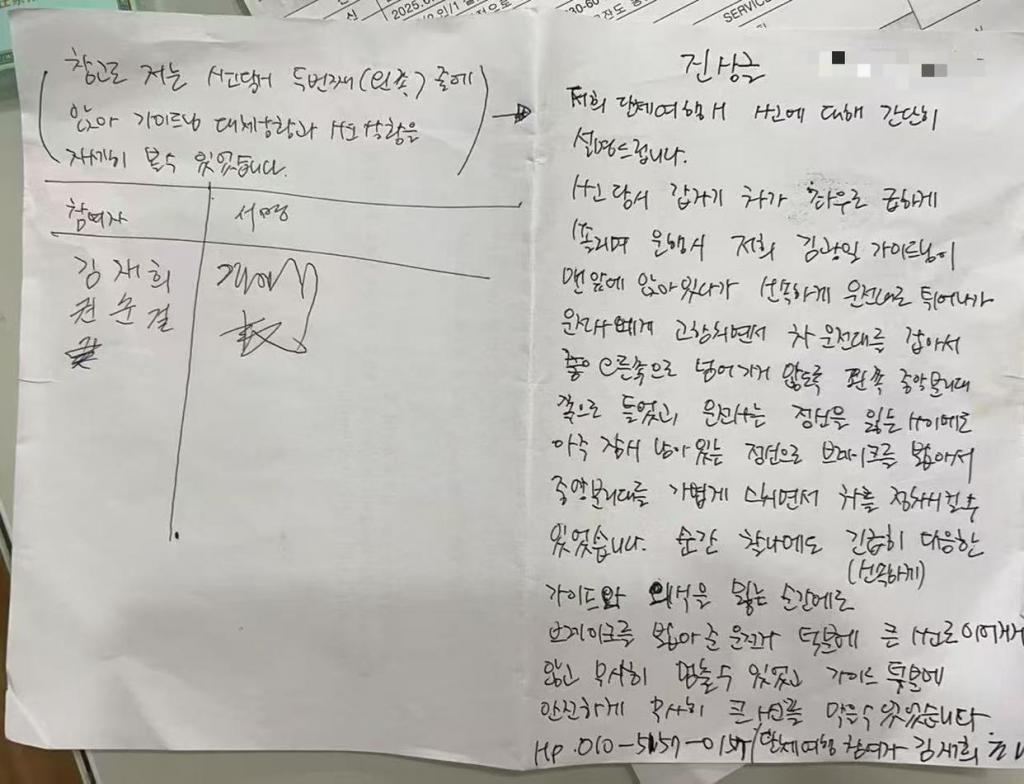 참고로 저는 사고당시 두번째(왼쪽) 줄에
앉아 가이드님 대처상황과 사고상황을
자세히 볼수 있었습니다.
참여자 서명
김재희
권순결
진상글
저희 단체여행시 사고에 대해 간단히
설명드립니다.
사고 당시 갑자기 차가 좌우로 급하게
쏠리며 운행시 저희 김광일 가이드님이
맨앞에 앉아있다가 신속하게 운전대로 튀어나가
운전사에게 고함치면서 차 운전대를 잡아서
오른쪽으로 넘어가지 않도록 왼쪽 중앙분리대
쪽으로 틀었고, 운전사는 정신을 잃는 사이에도
아주 잠시 남아있는 정신으로 브레이크를 밟아서
중앙분리대를 가볍게 스치면서 차를 정차시킬수
있었습니다. 순간 찰나에도 긴급히 대응한
(신속하게)
가이드와 의식을 잃는 순간에도
브레이크를 밟아준 운전사 덕분에 큰 사고로 이어지지
않고 무사히 멈출수 있었고 가이드 덕분에
안전하게 무사히 큰 사고를 막을수 있었습니다
HP.010-5157-0157/단체여행 참여자 김재희